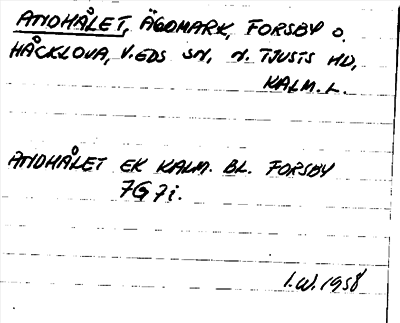 ANDHÅLET, ÄGOMARK, FORSBY O.
HÅCKLOVA, V.EDS SN, N. TJUSTS HD,
KALM. L.
ANDHÅLET EK KALM. BL. FORSBY
7G 7i.
I.W. 1958